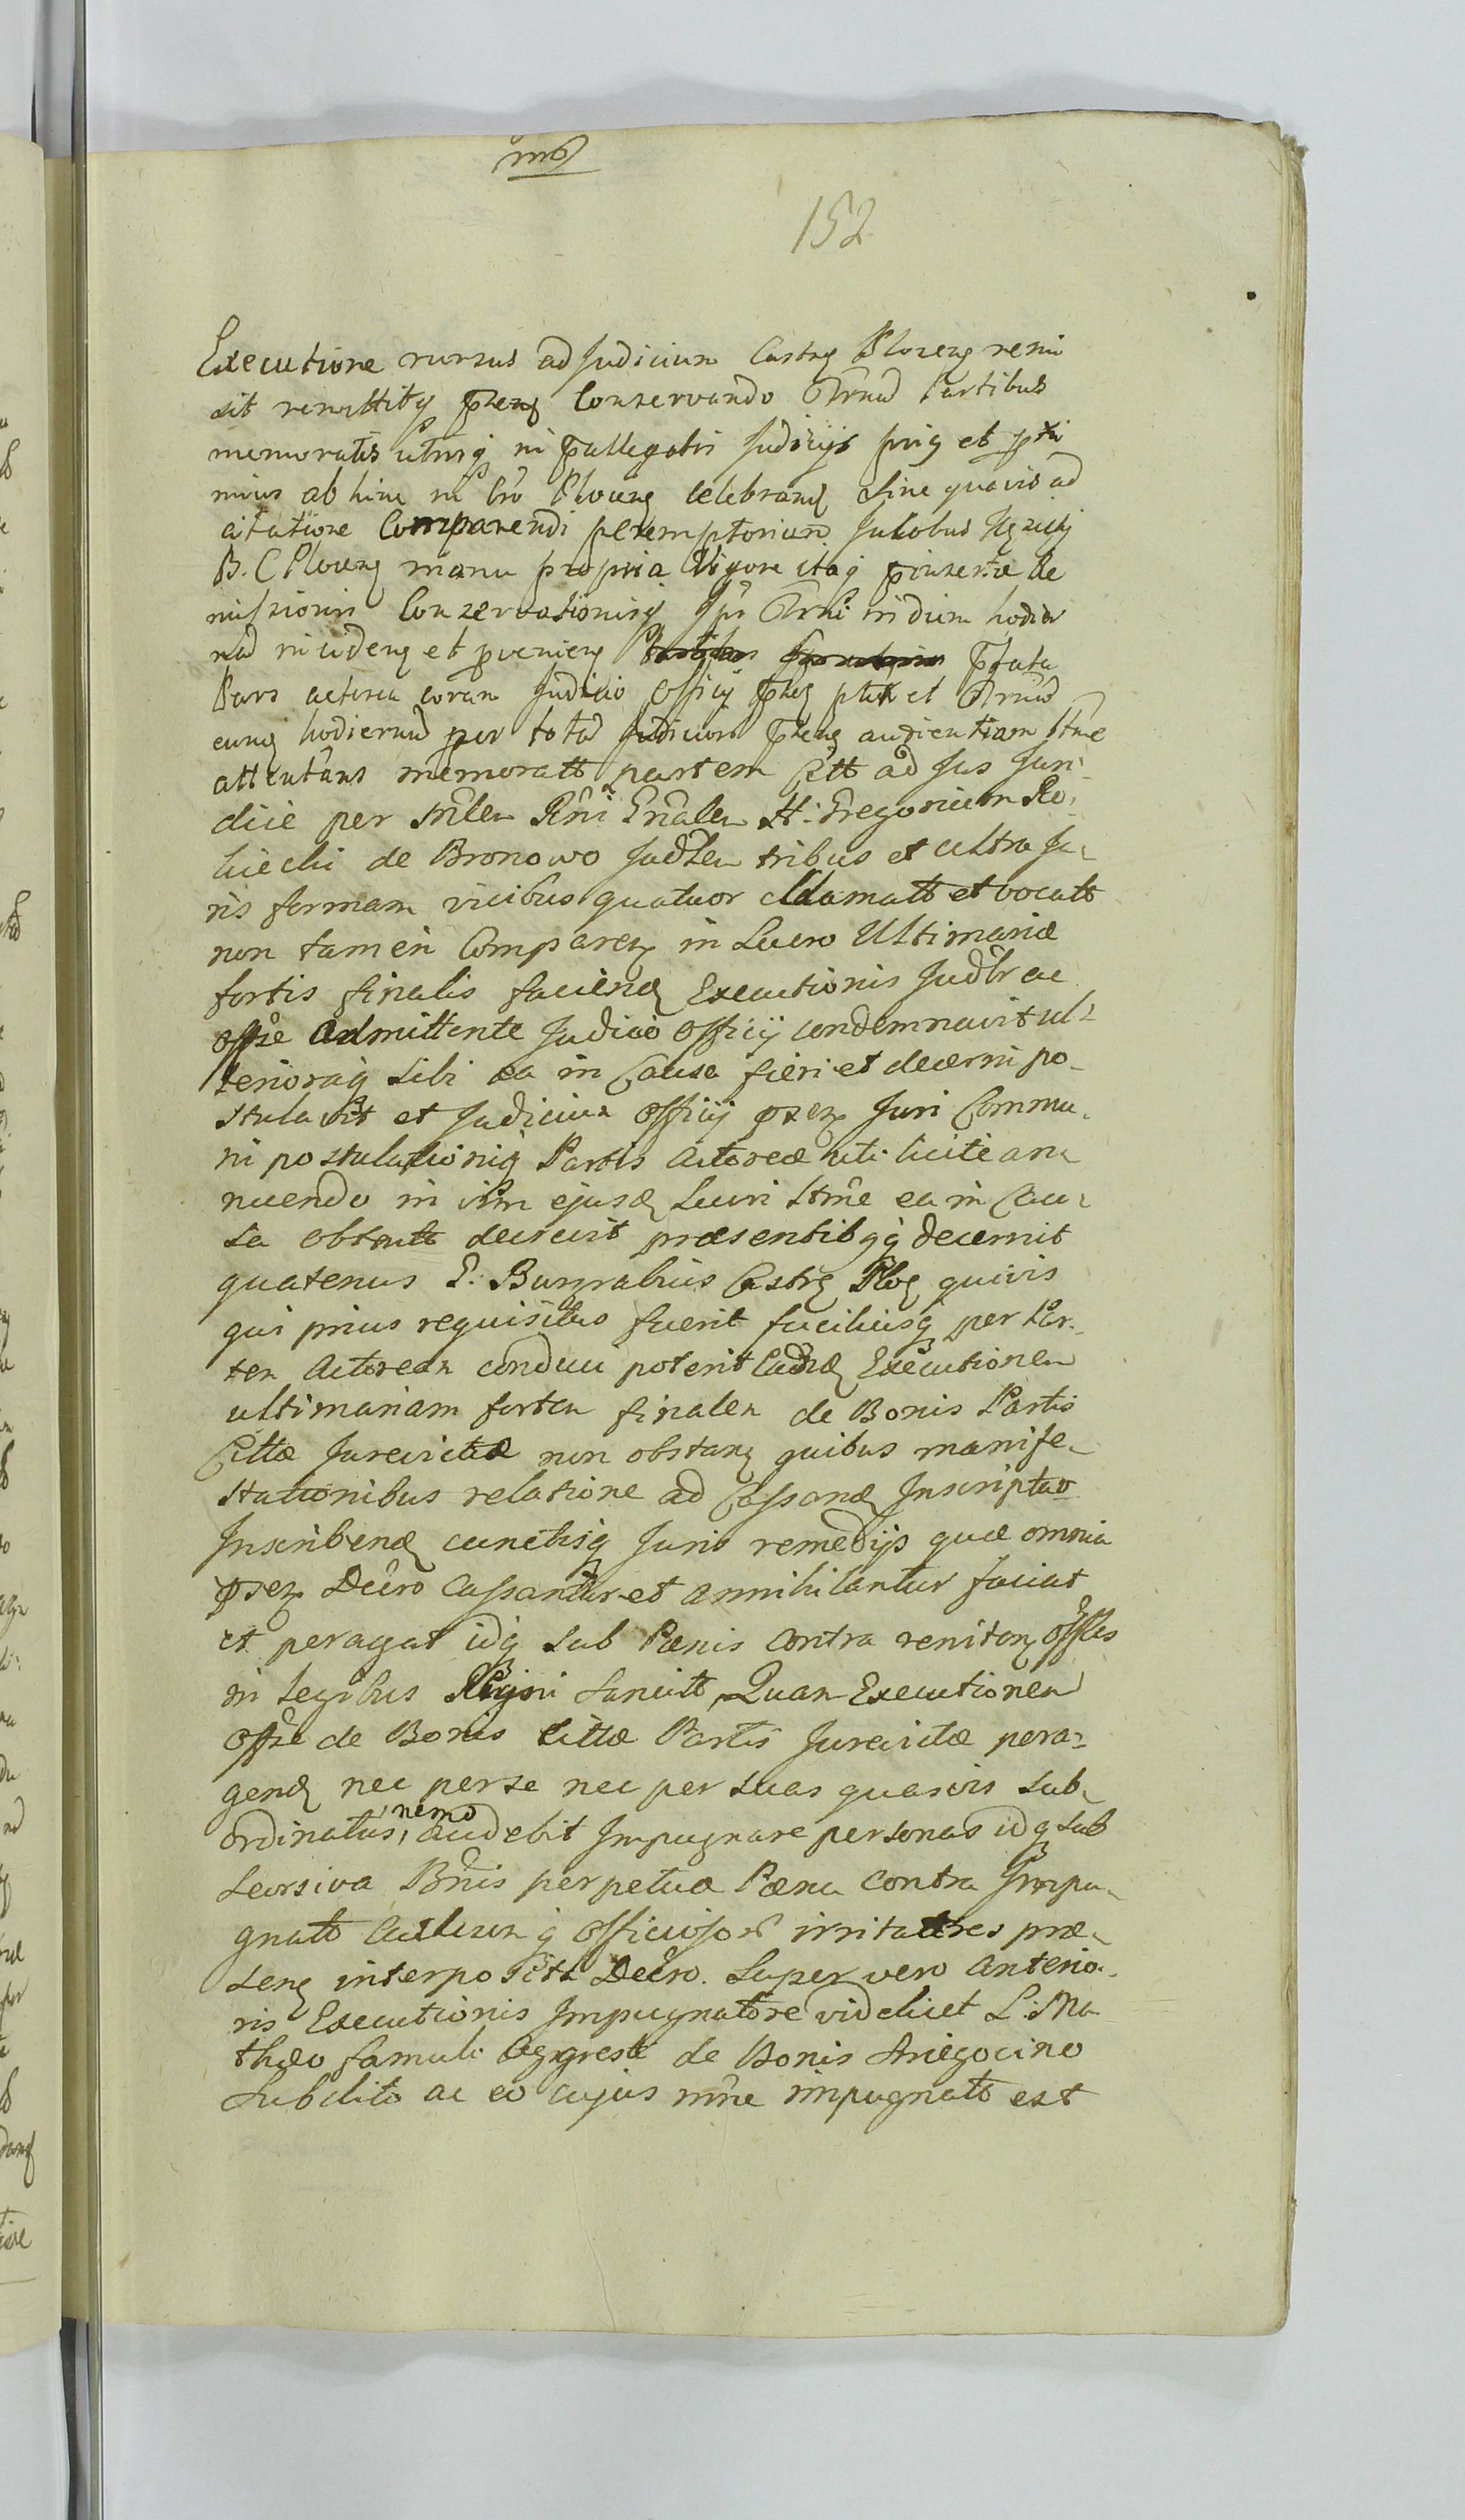 152
Executione rursus ad Judicium Castrę Plocenę remi
sit remittitą pñenę Conservando Trnũ Partibus
memoratis utrisq in pallegatis Judicijs prią et pxi
mius ab hinc in Cro Plocenę celebranę Sine quavis ad
citatione Comparendi peremptorium. Jakobus
B.C Plocenę manu propria Vigore itaq pinsertæ Re
missionis Conservationisq Trni in diem hodier
nũ incidenę et pvenienę pfata
Pars actorea coram Judicio Officij et Trnũ
eunę hodiernũ per totã Judicior pñenę audientiam Stme
attentans memoratt partem Citt ad Jus Juri
dice per Mrlem Rñi Gñalem H: Gregorium Ro,
kicki de Bronowo Judlem tribus et ultra Ju,
ris formam vicibus quatuor clamatt et vocatt
non tamen Comparenę in Lucro Ultimariæ
fortis finalis facienę Executionis Judlr ac
Offse admittente Judicio Officij condemnavit ul-
terioraq Sibi ea in Causa fieri et decerni po-
stulavit et Judicium Officij psenę Juri Commu-
ni postulationiq Partis Actoreæ uti licite an-
nuendo in vim ejusd Lucri Stme ea in Cau-
sa obtentt decrevit præsentibqq decernit
quatenus G: Burgrabius Castrę Ploę quivis
qui prius requisitus fuerit faciliusq per Par-
tem Actoream conduci poterit Eandę Executionem
ultimariam fortem finalem de Bonis Partis
Cittæ Jurevictæ non obstanę quibus manife-
stationibus relatione ad Cassandę Inscriptao
Inscribendę cunctisq Juris remedijs quæ omnia
psenę Decro Cassantur et annihilantur faciat
et peragat idq sub Pænis contra renitenę Offles
in legibus Regni sancitt, Quam Executionem
Offse de Bonis Cittæ Partis Jurevictæ pera-
gendę nec per se nec per suas quasvis sub-
ordinatas, nemo audebit Impugnare personas idq sub
Seorsiva Bñis perpetuæ Pæna contra Impu-
gnatt Actumq officiosorũ irritatores præ-
senę interposita Decro. Super vero anterio-
ris Executionis Impugnatore videlicet L: Ma
theo famulo Aggresti de Bonis Sniegocino
Subdito ac eo cujus nñe impugnatt est